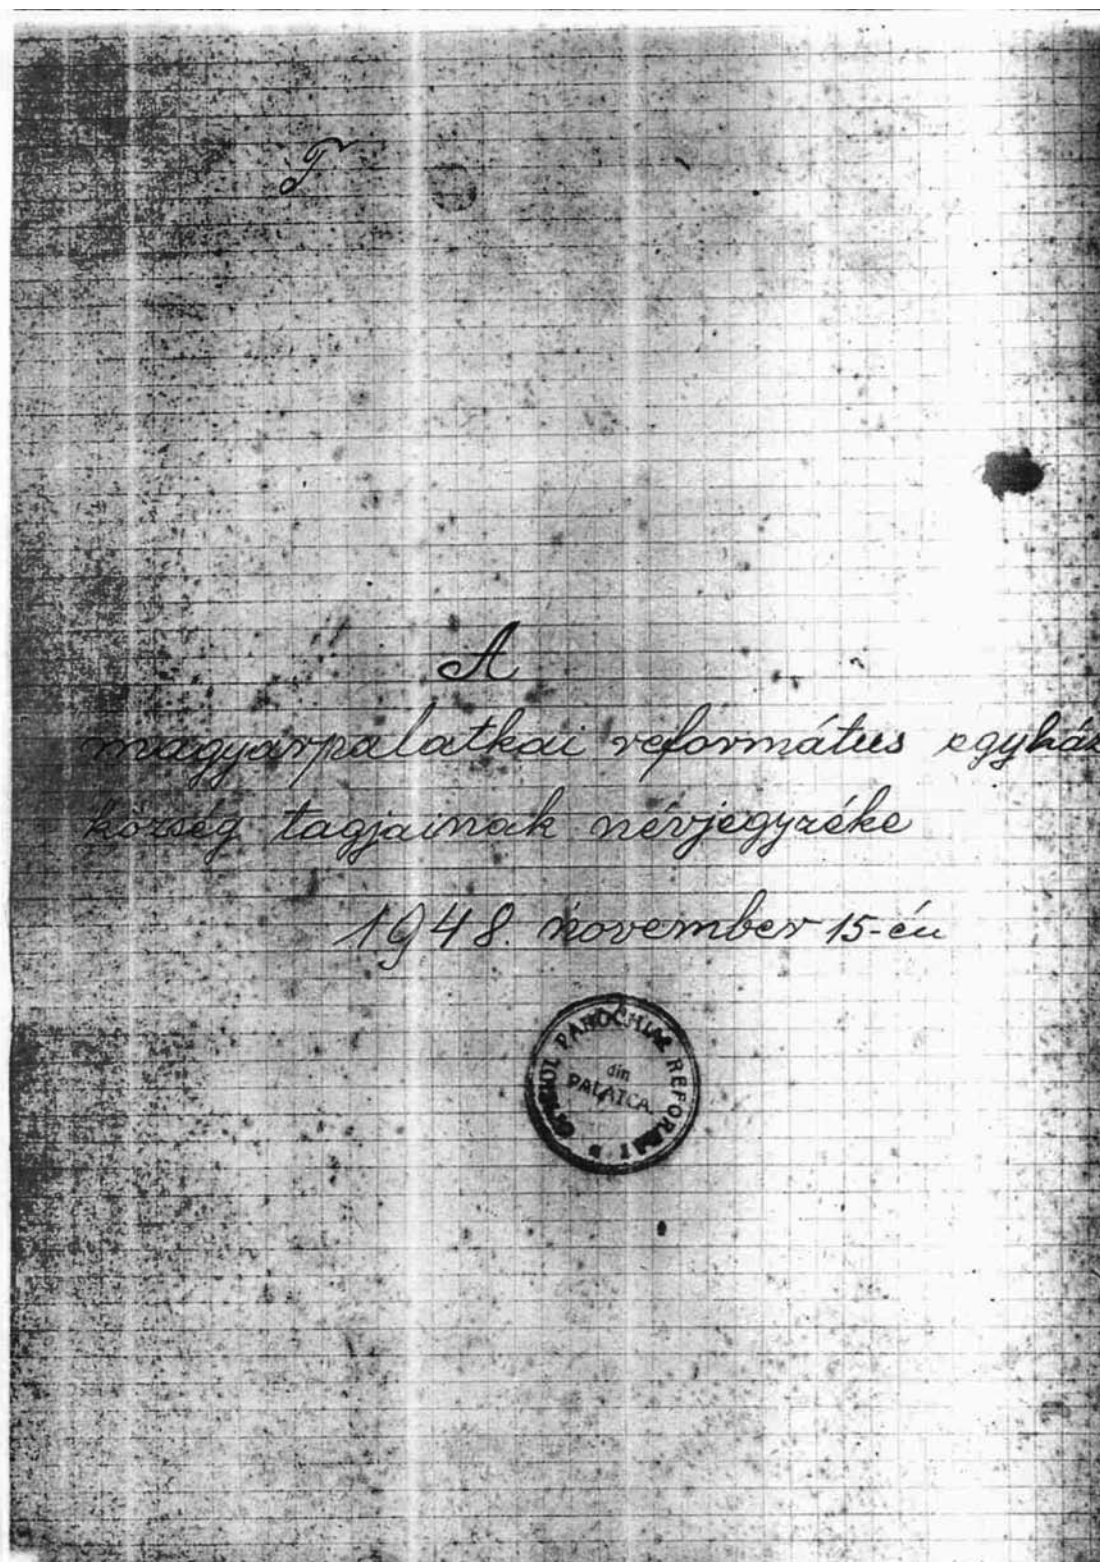 A
magyarpalatkai református egyház
község tagjainak névjegyzéke
1948. november 15-én
PAROCHIAL REFORMAT
din
PALATCA